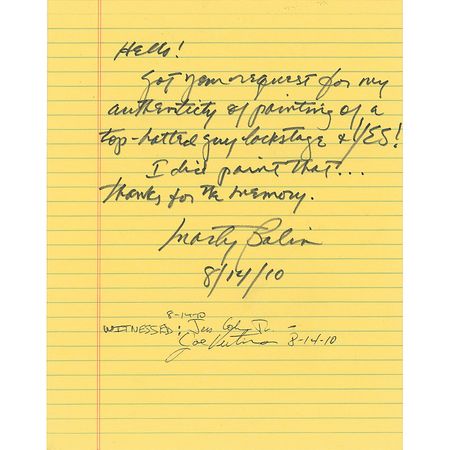 Hello!
Got your request for my
authenticity of painting of a
top-hatted guy backstage & YES!
I did paint that...
thanks for the memory.
Marty Balin
8/14/10
8-14-10
WITNESSED: Jr.
Joe 8-14-10